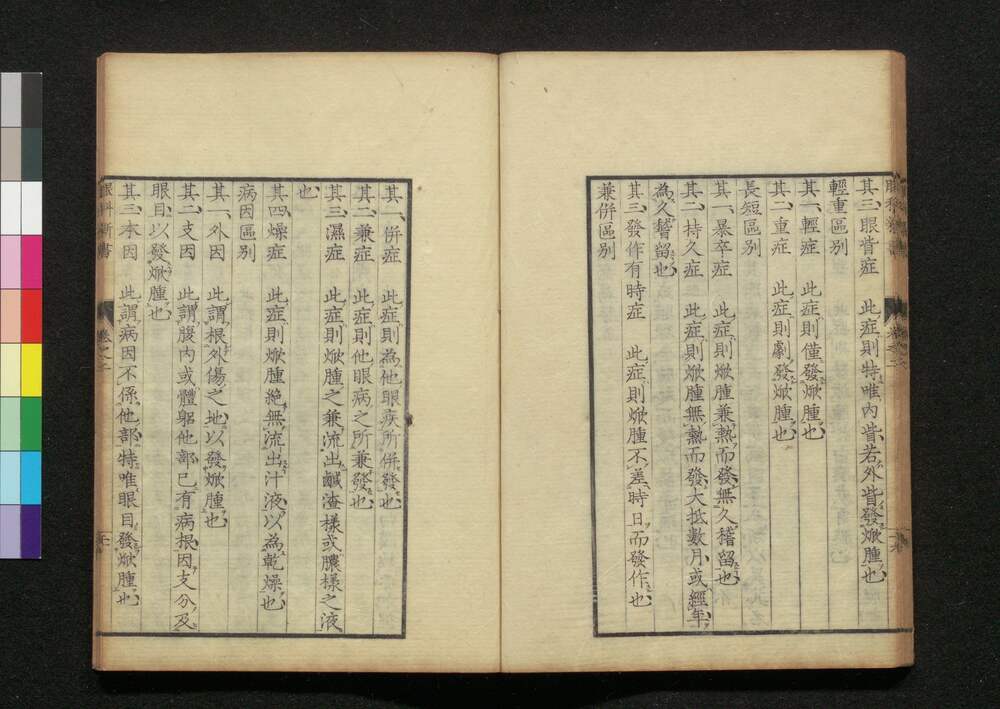 其三、眼眥症　此症則特唯內眥、若外眥發焮腫也、
輕重區別
其一、輕症　此症則僅發焮腫也、
其二、重症　此症則劇發焮腫也、
長短區別
其一、暴卒症　此症則焮腫兼熱而發、無久稽留也、
其二、持久症　此症則焮腫無熱而發、大抵數月、或經年、
為久稽留也、
其三、發作有時症　此症則焮腫不差時日、而發作也、
兼併區別
其一、併症　此症則為他眼疾所併發也、
其二、兼症　此症則他眼病之所兼發也、
其三、濕症　此症則焮腫之兼流出鹹渣樣或膿樣之液
也、
其四、燥症　此症則焮腫絕無流出汁液、以為乾燥也、
病因區別
其一、外因　此謂根外傷之地、以發焮腫也、
其二、支因　此謂腹內或體軀他部已有病根因、支分及
眼目、以發焮腫也、
其三、本因　此謂病因不係他部、特唯眼目發焮腫也、
眼科新書
卷之二